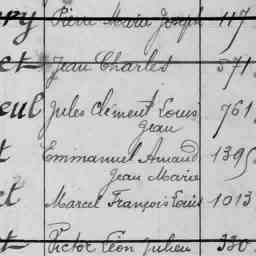 Pierre Marie Joseph 117
Jean Charles 571
eul Jules Clément Louis 761
Jean
t Emmanuel Amand 1395
Jean Marie
et Marcel François Louis 1013
Victor Léon Julien 330